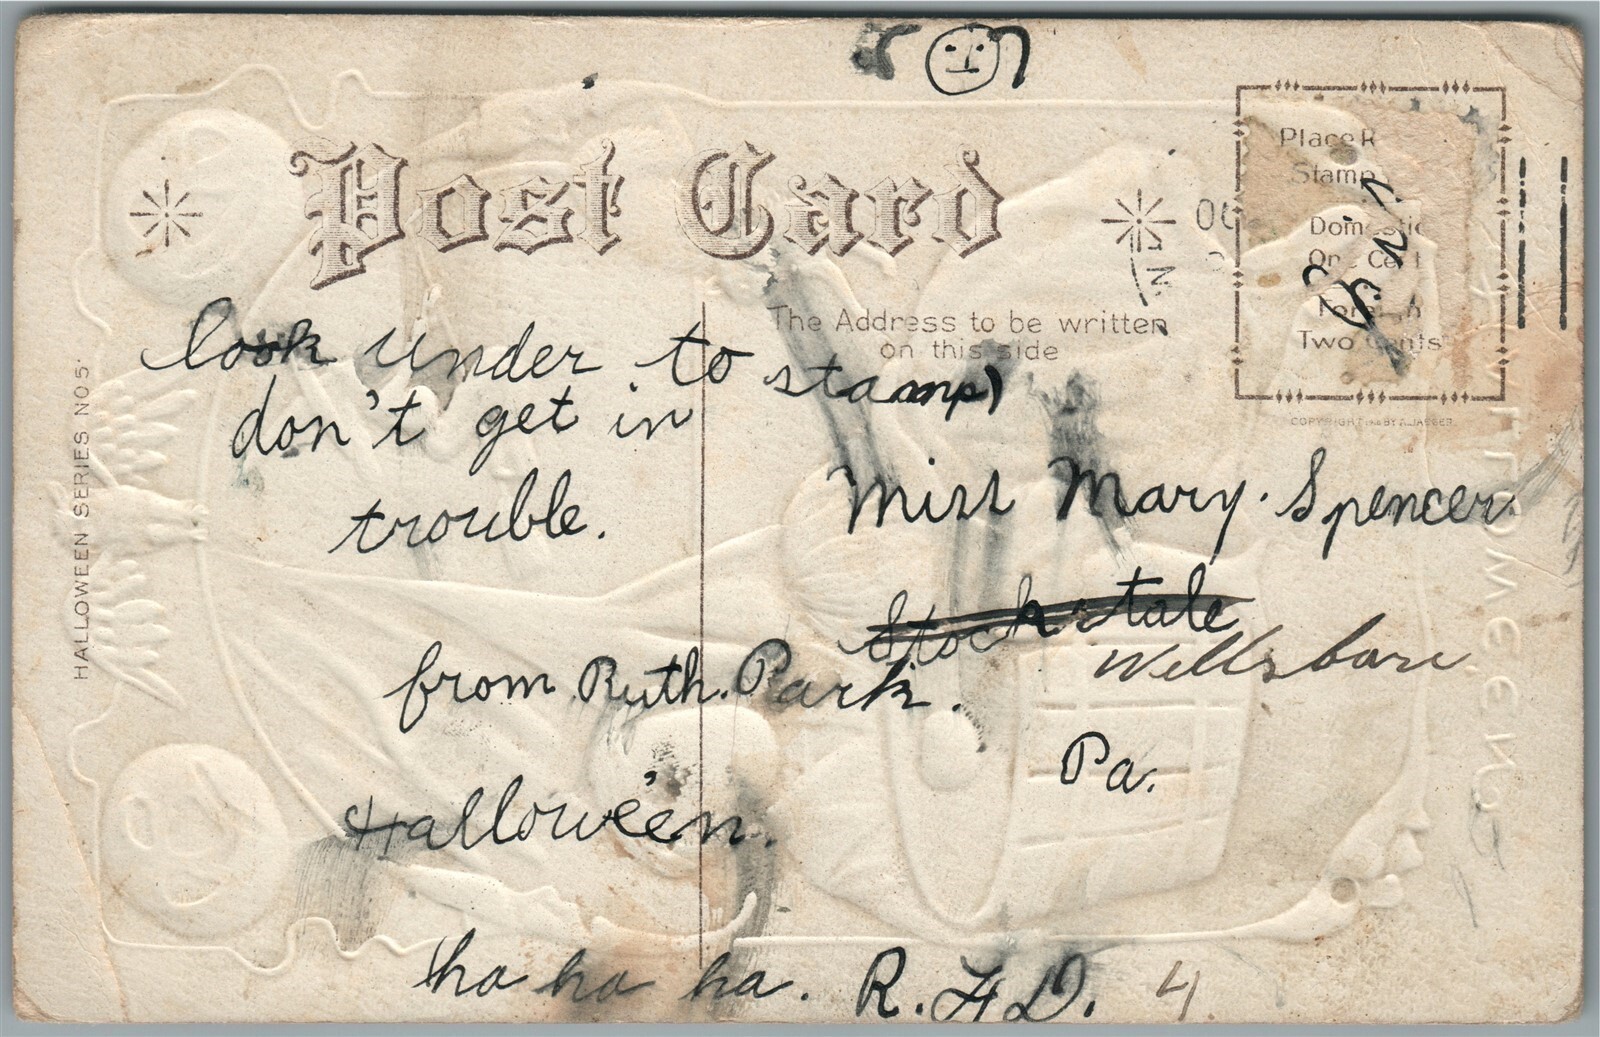 Post Card
OC
Place
Stamp
Domestic
One Cent
Foreign
Two Cents
COPYRIGHT BY A. JAEGER.
The Address to be written
on this side
HALLOWEEN SERIES NO 5.
look under to stamp)
don't get in
trouble.
from Ruth. Park.
Hallowe'en.
ha ha ha.
Miss Mary. Spencer
Stockstale
Wellsboro
Pa.
R. F. D. 4